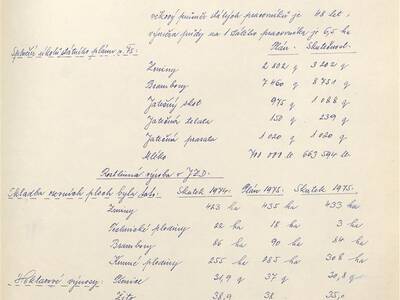 věkový průměr stálých pracovníků je 48 let,
výměra půdy na 1 stálého pracovníka je 6,5 ha
Splnění úkolů státního plánu r. 75: Plán: Skutečnost:
Zeniny 2 802 q 3 202 q
Brambory 7 460 q 8 751 q
Jatečný skot 975 q 1 088 q
Jatečná telata 150 q 239 q
Jatečná prasata 1 020 q 1 020 q
Mléko 701 000 lt. 663 594 lt.
Rostlinná výroba v JZD.
Skladba osevních ploch byla tato: Skutek 1974. Plán 1975. Skutek 1975.
Zeniny 423 ha 435 ha 433 ha
Technické plodiny 22 ha 18 ha 3 ha
Brambory 86 ha 90 ha 84 ha
Krmné plodiny 255 ha 285 ha 308 ha
Hektarové výnosy: Pšenice 31,9 q 37 q 30,8 q
Žito 38,9 38